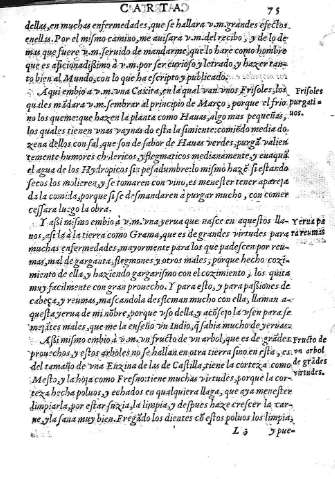 CARTA
75
dellas, en muchas enfermedades, que se hallara v.m. grandes efectos
enellas. Por el mismo camino, me auisara v.m. del recibo, y de lo de
mas que fuere v.m. seruido de mandarme, que lo hare como hombre
que es aficionadissimo à v.m. por ser curioso y letrado, y hazer tan-
to bien al Mundo, con lo que ha escripto y publicado.
Aqui embio à v.m. vna Caxita, en la qual van vnos Frisoles, los
quales mãdara v.m. sembrar al principio de Março, porque el frio
no los queme: que hazen la planta como Hauas, algo mas pequeñas,
los quales tienen vnas vaynas do esta la simiente: comiẽdo media do
zena dellos con sal, que son de sabor de Hauas verdes, purgã valien
temente humores cholericos, y flegmaticos medianamente, y euaquã
el agua de los Hydropicos sin pesadumbre lo mismo hazẽ si estando
secos los molieren, y se tomaren con vino, es menester tener apareja
da la comida, porque si se desmandaren à purgar mucho, con comer
cessara luego la obra.
Frisoles
purgati-
uos.
Assi mismo embio à v.m. vna yerua que nasce en aquestos lla-
nos, assida à la tierra como Grama, que es de grandes virtudes para
muchas enfermedades, mayormente para los que padescen por reu-
mas, mal de garganta, flegmones y otros males, porque hecho cozi-
miento de ella, y haziendo gargarismo con el cozimiento, los quita
muy facilmente con gran prouecho. Y para esto, y para passiones de
cabeça, y reumas, mascandola desflcman mucho con ella, llaman a-
questa yerua de mi nõbre, porque vso della, y acõsejo la vsen para se-
mejãtes males, que me la enseño vn Indio, q̃ sabia mucho de yeruas.
Yerua pa
ra reumas
Assi mismo embio à v.m. vn fructo de vn arbol, que es de grãdes
prouechos, y estos arboles no se hallan en otra tierra sino en esta, es
del tamaño de vna Enzina de las de Castilla, tiene la corteza como
Mesto, y la hoja como Fresno: tiene muchas virtudes, porque la cor-
teza hecha poluos, y echados en qualquiera llaga, que aya menester
limpiarla, por estar suzia, la limpia, y despues haze crescer la car-
ne, y la sana muy bien. Fregãdo los dientes cõ estos poluos los limpia,
Fructo de
vn arbol
de grãdes
virtudes.
y pue-